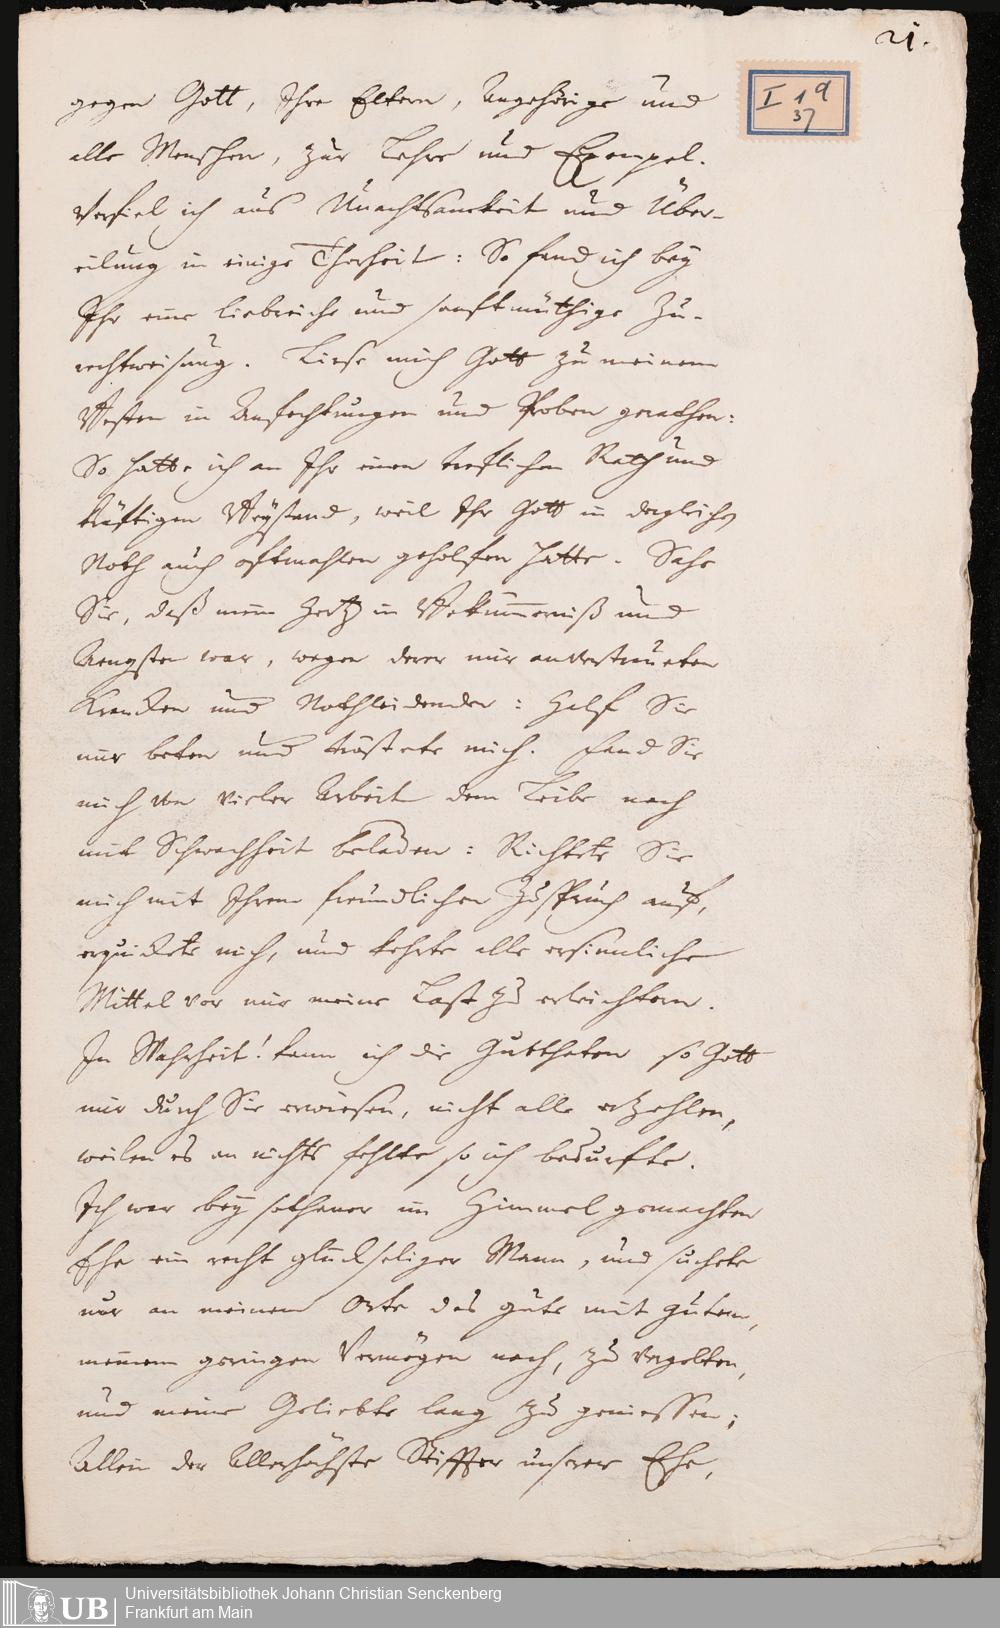 21.
I 19
37
gegen Gott, Ihre Eltern, Angehörige und
alle Menschen, zur Lehre und Exempel.
Verfiel ich aus Unachtsamkeit und Über-
eilung in einige Thorheit: So fand ich bey
Ihr eine liebreiche und sanftmüthige Zu-
rechtweisung. Liese mich Gott zu meinem
Besten in Anfechtungen und Proben gerathen:
So hatte ich an Ihr einen trefflichen Rath und
kräftigen Beystand, weil Ihr Gott in dergleichen
Noth auch oftmahlen geholfen hatte. Sahe
Sie, daß mein Hertz in Bekümmerniß und
Aengsten war, wegen derer mir anvertraueten
Krancken und Nothleidenden: Half Sie
mir beten und tröstete mich. Fand Sie
mich von vieler Arbeit dem Leibe nach
mit Schwachheit beladen: Richtete Sie
mich mit Ihrem freundlichen Zuspruch auf,
erquickete mich, und kehrte alle ersinnliche
Mittel vor mir meine Last zu erleichtern.
In Wahrheit! kann ich die Gutthaten so Gott
mir durch Sie erwiesen, nicht alle erzehlen,
weilen es an nichts fehlte so ich bedurfte.
Ich war bey sothaner im Himmel gemachten
Ehe ein recht glückseliger Mann, und suchete
nur an meinem Orte das gute mit gutem,
meinem geringen Vermögen nach, zu vergelten,
und meine Geliebte lang zu geniessen;
Allein der Allerhöchste Stiffter unserer Ehe,
UB
Universitätsbibliothek Johann Christian Senckenberg
Frankfurt am Main